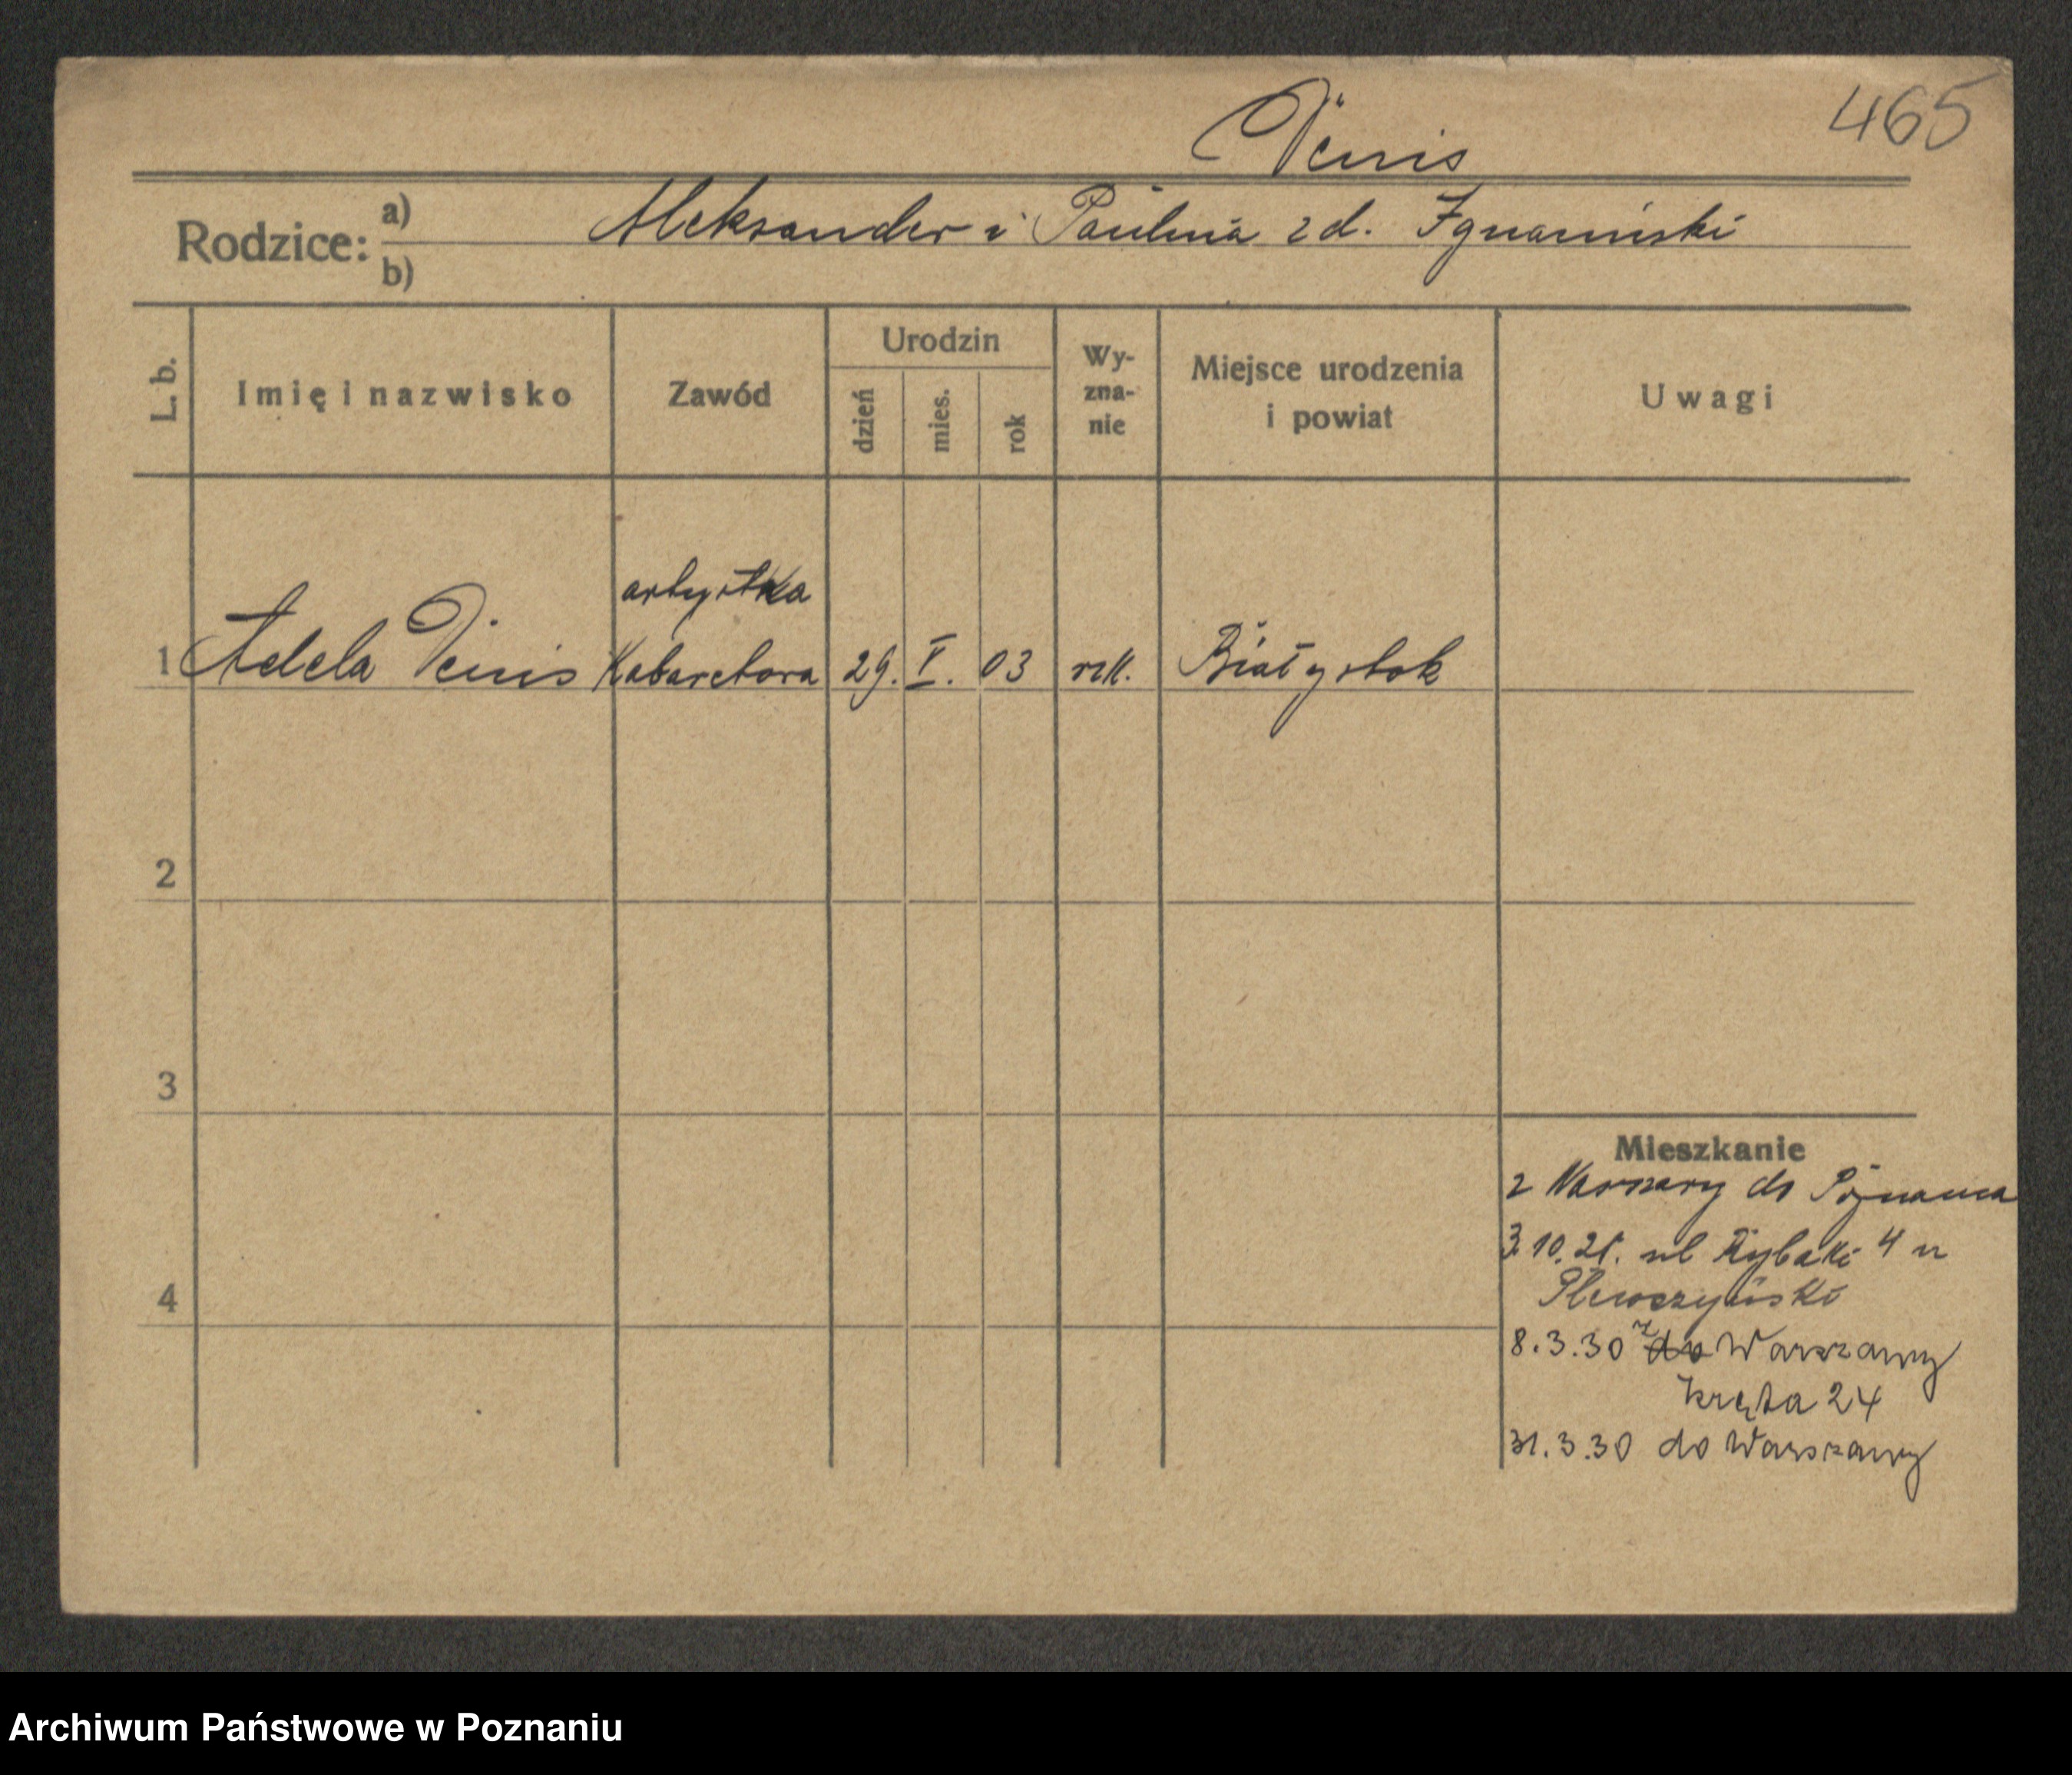 465
Venis
Rodzice: a) b)
Aleksander i Paulina z d.
L. b.
Imię i nazwisko
Zawód
Urodzin
dzień
mies.
rok
Wy-
zna-
nie
Miejsce urodzenia
i powiat
Uwagi
artystka
1 Adela Venis Kabaretowa 29. V. 03 rzk. Białystok
2
3
4
Mieszkanie
z Warszawy do Poznania
3.10.21. ul Rybaki 4 u
8.3.30 z do Warszawy
kręta 24
31.3.30 do Warszawy
Archiwum Państwowe w Poznaniu